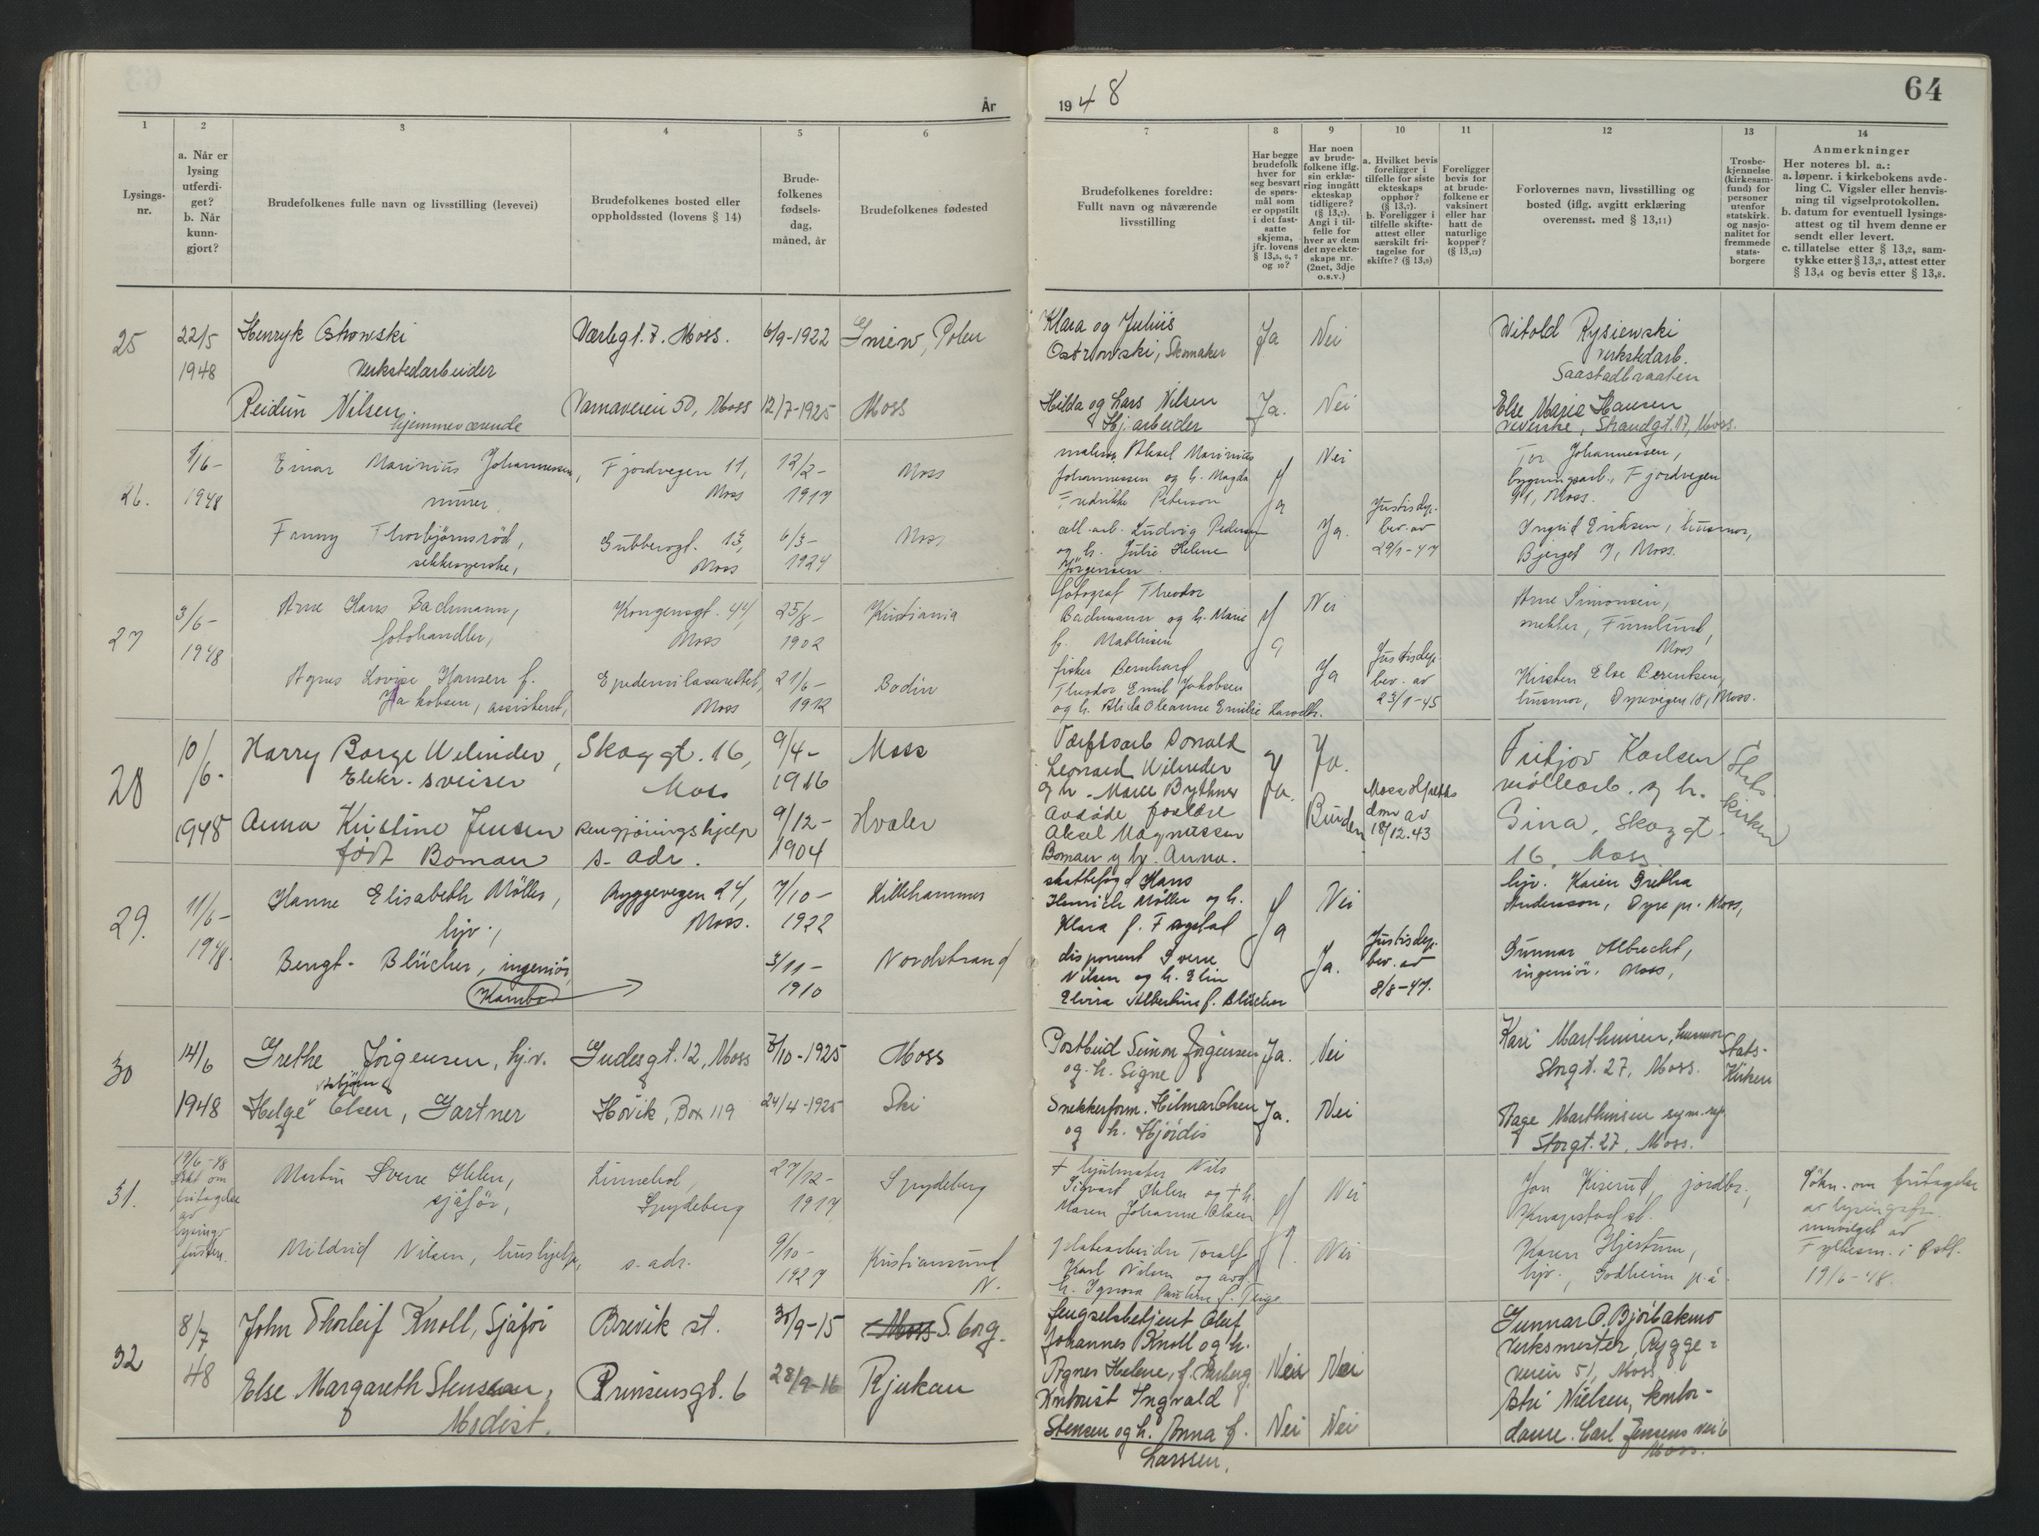 År
1948
64
1
2
3
4
5
6
7
8
9
10
11
12
13
14
Lysings-
nr.
a. Når er
lysing
utferdi-
get?
b. Når
kunn-
gjort?
Brudefolkenes fulle navn og livsstilling (levevei)
Brudefolkenes bosted eller
oppholdssted (lovens § 14)
Brude-
folkenes
fødsels-
dag,
måned, år
Brudefolkenes fødested
Brudefolkenes foreldre:
Fullt navn og nåværende
livsstilling
Har begge
brudefolk
hver for
seg besvart
de spørs-
mål som
er oppstilt
i det fast-
satte
skjema,
jfr. lovens
§ 13,5, 6, 7
og 10?
Har noen
av brude-
folkene iflg.
sin erklæ-
ring inngått
ekteskap
tidligere?
(§ 13,7).
Angi i til-
felle for
hver av dem
det nye ekte-
skaps nr.
(2net, 3dje
o.s.v.)
a. Hvilket bevis
foreligger i
tilfelle for siste
ekteskaps
opphør?
(§ 13,7).
b. Foreligger i
tilfelle skifte-
attest eller
særskilt fri-
tagelse for
skifte? (§ 13,9)
Foreligger
bevis for
at brude-
folkene er
vaksinert
eller har
hatt de
naturlige
kopper?
(§ 13,12)
Forlovernes navn, livsstilling og
bosted (iflg. avgitt erklæring
overensst. med § 13,11)
Trosbe-
kjennelse
(kirkesam-
fund) for
personer
utenfor
statskirk.
og nasjo-
nalitet for
fremmede
stats-
borgere
Anmerkninger
Her noteres bl. a.:
a. løpenr. i kirkebokens avde-
ling C. Vigsler eller henvis-
ning til vigselprotokollen.
b. datum for eventuell lysings-
attest og til hvem denne er
sendt eller levert.
c. tillatelse etter § 13,2, sam-
tykke etter § 13,3, attest etter
§ 13,4 og bevis etter § 13,8.
25
22/5
1948
Henryk Ostrowski
Verkstedarbeider
Værlegt. 7. Moss.
6/9-1922
Gniew, Polen
Klara og Julius
Ostrowski, Skomaker
Ja
Nei
Witold Rysiewski
verkstedarb.
Saastadbraaten
Reidun Nilsen
hjemmeværende
Varnaveien 50, Moss
12/7-1925
Moss
Hilda og Lars Nilsen
Hj.arbeider
Ja.
Nei
Else Marie Hansen
Strandgt. 17, Moss.
26.
1/6-
1948
Einar Marinius Johannessen,
murer
Fjordvegen 11,
Moss
12/2-
1917
Moss
maler Aksel Marinius
Johannessen og h. Magda
Fredrikke Peterson
Ja
Nei
Tor Johannessen,
bygningsarb., Fjordvegen
91, Moss.
Fanny Thorbjørnsrød,
sekkesyerske,
Gubberogt. 13,
Moss
6/3-
1924
Moss
cell.arb. Ludvig Pedersen
og h. Julie Helene
Jørgensen.
Ja.
Justisdep.
bev. av
29/1-47
Ingrid Eriksen, husmor,
Bjerget 7, Moss.
27
3/6-
1948
Arne Hans Bachmann,
fotohandler,
Kongensgt. 44,
Moss
25/8-
1902
Kristiania
fotograf Theodor
Bachmann og h. Marie
f. Mathisen
Ja
Nei
Arne Simonsen,
mekler, Furulund,
Moss
Agnes Lovise Hansen f.
Jakobsen, assistent,
Epedemilasarettet,
Moss
21/6-
1912
Bodin
fisker Bernhard
Theodor Emil Jakobsen
og h. Alida Oleanne Emilie
Ja
Justisdep.
bev. av
23/1-45
Kirsten Else Berentsen,
husmor, Dyrevegen 18, Moss.
28
10/6-
1948
Harry Borge Welinder,
Elekr. sveiser
Skoggt. 16,
Moss
9/4-
1916
Moss
Værftsarb Donald
Leonard Wilinder
og h. Marie Bythner
Ja.
Ja.
Fritjov Karlsen
møllearb. og h.
Gina, Skoggt.
16. Moss
Stats
kirken
Anna Kristine Jensen
født Boman
Rengjøringshjelp
s. adr.
9/12-
1904
Hvaler
Avdøde foreldre
Aksel Magnussen
Boman og h. Anna.
Bruden
Moss
dom av
18/12.43
29.
11/6-
1948.
Hanne Elisabeth Møller,
hjv.,
Ryggevegen 24,
Moss.
7/10-
1922
Lillehammer
skattefogd Hans
Henrich Møller og h.
Klara f. Fagstad
Ja
Nei
hjv. Karen Grethe
Andersson, Dyre pr. Moss,
Bengt Blücher, ingeniør,
Kambo
3/11-
1910
Nordstrand
disponent Sverre
Nilsen og h. Elin
Elvira Albertine f. Blücher
Ja.
Justisdep.
bev. av
8/8-47.
Gunnar Albrecht,
ingeniør, Moss,
30
14/6
1948
Grethe Jørgensen, hjv.
Gudesgt. 12, Moss
7/10-1925
Moss
Postbud Simon Jørgensen
og h. Signe
Ja.
Nei
Kari Marthinsen, husmor
Storgt. 27, Moss.
Stats-
kirken
Asbjørn
Helge Olsen, Gartner
Høvik, Box 119
24/4-1925
Ski
Snekkerform. Hilmar Olsen
og h. Hjørdis
Ja.
Nei
Aage Marthinsen
Storgt. 27, Moss.
31.
19/6-48
Søkt om
fritagelse
av
lysings-
fristen.
Martin Sverre Ihlen,
sjåfør,
Linnehol,
Spydeberg
27/12-
1917
Spydeberg
+ hjulmaker Nils
Sigvart Ihlen og + h.
Maren Johanne Olsen
Ja
Nei
Jon Kiserud, jordbr.,
Knapstad st.
Søkn. om fritagelse
av lysingsfr.
innvilget av
Fylkesm. i Østf.
19/6-48.
Mildrid Nilsen, hushjelp,
s. adr.
9/10-
1927
Kristiansund
N.
platearbeider Toralf
Karl Nilsen og avd.
h.
Nei
Karen Hjertum,
hjv., Godheim p.å.
32
8/7
48
John Thorleif Knoll, Sjåfør
Brevik st.
30/9-15
Moss S.borg.
fengselsbetjent Oluf
Johannes Knoll og h.
Agnes Helene, f.
Nei
Nei
Gunnar O. Bjørbakmo
Verksmester, Rygge-
veien 51, Moss
Else Margareth Stensen,
Modist.
Prinsensgt. 6
28/9-16
Rjukan
Kontorist Ingvald
Stensen og h. Anna f.
Larssen.
Nei
Nei
Astri Nielsen, kontor-
dame. Carl Jensens vei 6
Moss.